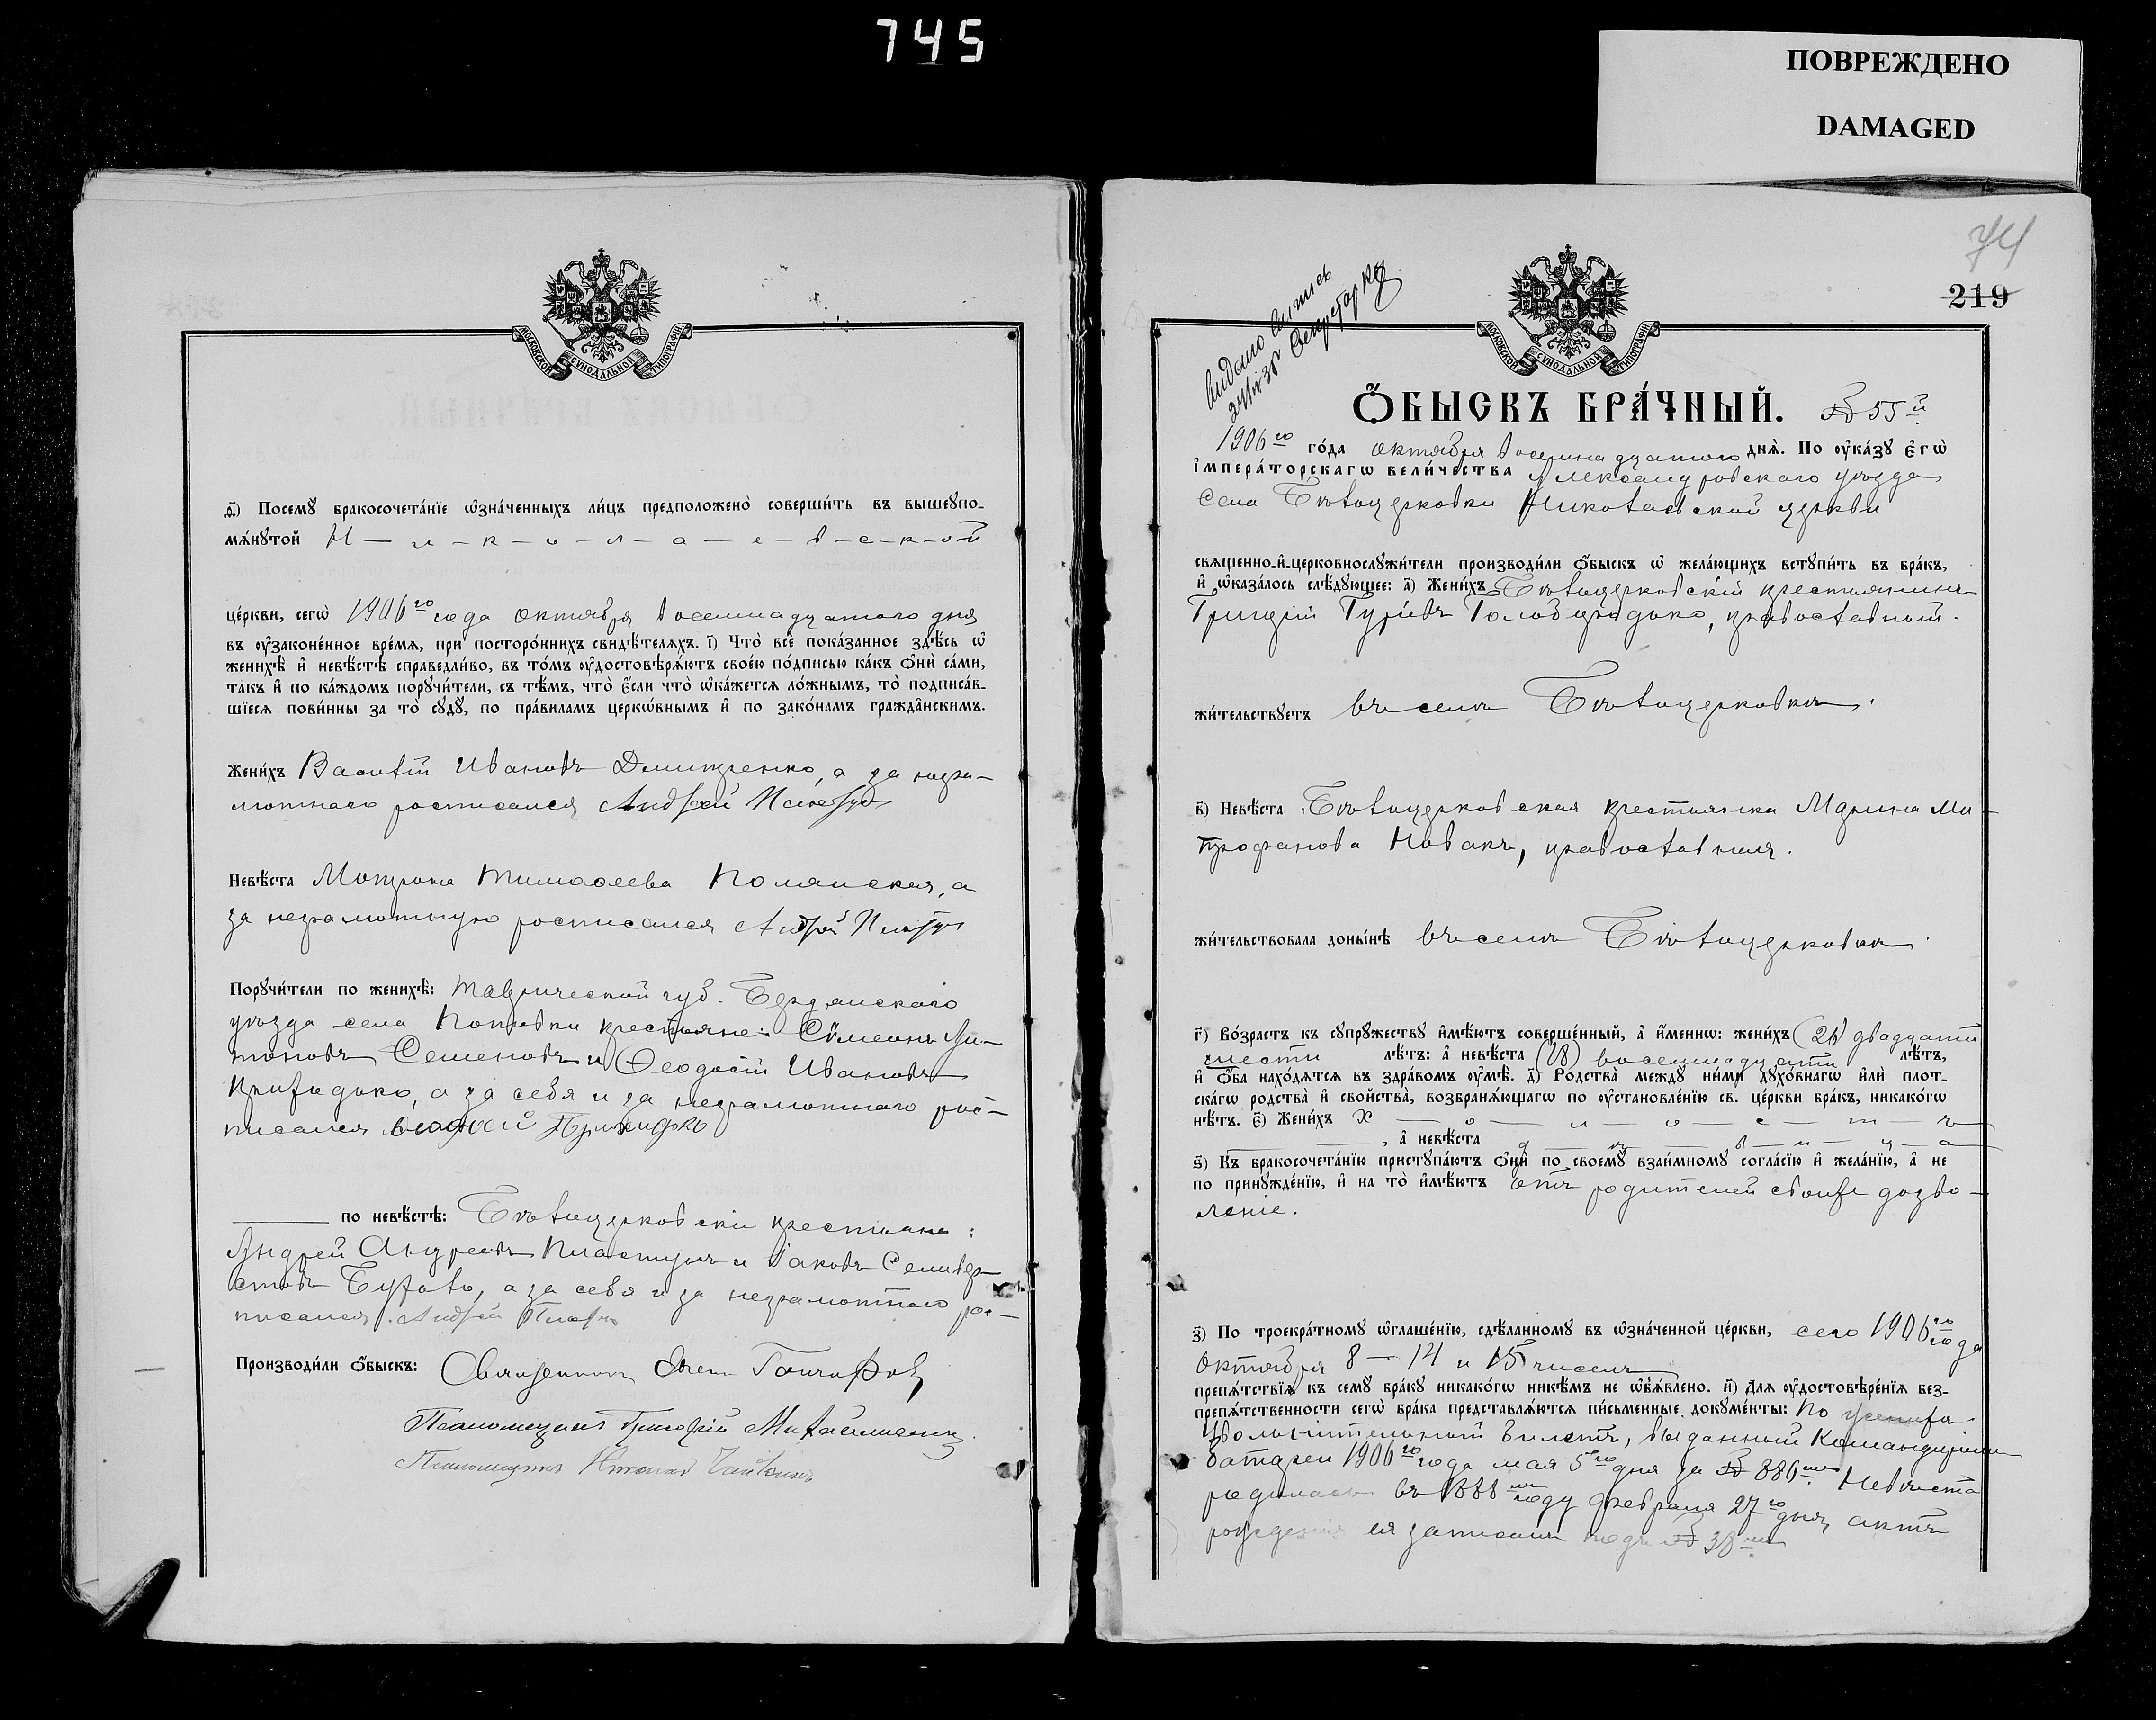 745
ПОВРЕЖДЕНО
DAMAGED
МОСКОВСКОЙ СѴНОДАЛЬНОЙ ТИПОГРАФІИ
д҃) Посемꙋ бракосочета́нїе ѡ҆зна́ченныхъ ли́цъ предположено̀ соверши́ть въ вышеупо-
мѧ́нꙋтой Н-и-к-о-л-а-е-в-с-к-о-й
це́ркви, сегѡ̀ 1906го года октября восемнадцатого дня
въ оу҆законе́нное вре́мѧ, при посторо́ннихъ свидѣ́телѧхъ. і҃) Что̀ всѐ пока́занное здѣ́сь ѡ҆
женихѣ̀ и҆ невѣ́стѣ справедли́во, въ то́мъ оу҆достовѣрѧ́ютъ свое́ю по́дписью ка́къ ѻ҆нѝ са́ми,
та́къ и҆ по ка́ждомъ порꙋчи́тели, съ тѣ́мъ, что̀ є҆́сли что̀ ѡ҆ка́жетсѧ ло́жнымъ, то̀ подписа́в-
шїесѧ пови́нны за то̀ сꙋдꙋ̀, по пра́виламъ церко́внымъ и҆ по зако́намъ гражда́нскимъ.
Жени́хъ Василій Ивановъ Дмитренко, а за негра-
мотнаго росписался Андрей
Невѣ́ста Мотрона Тимофеева Полянская, а
за неграмотную росписался Андрей
Порꙋчи́тели по женихѣ̀: Таврической губ. Бердянскаго
уѣзда села Поповки крестьяне: Симеонъ Ан-
тоновъ Семеновъ и Ѳеодосій Ивановъ
Прихидько, а за себя и за неграмотнаго рос-
писался
по невѣ́стѣ: Бѣлоцерковскіи крестьяне:
Андрей Андреевъ Пластунъ и Іаковъ Селивер-
стовъ а за себя и за неграмотнаго рос-
писался Андрей
Производи́ли ѻ҆́быскъ: Священникъ Гончаровъ
Псаломщикъ Григорій Михайличенко
Псаломщикъ Николай
74
219
МОСКОВСКОЙ СѴНОДАЛЬНОЙ ТИПОГРАФІИ
Ѻ҆́БЫСКЪ БРА́ЧНЫЙ. № 55й
1906го го́да октября восемнадцатого днѧ̀. По оу҆ка́зꙋ є҆гѡ̀
і҆мпера́торскагѡ вели́чества Александровского уѣзда
села Бѣлоцерковки Николаевской церкви
свѧще́нно-и҆-церковнослꙋжи́тели производи́ли ѻ҆́быскъ ѡ҆ жела́ющихъ встꙋпи́ть въ бра́къ,
и҆ ѡ҆каза́лось слѣ́дꙋющее: а҃) Жени́хъ Бѣлоцерковскій крестьянинъ
Григорій Гуріевъ православный.
жи́тельствꙋетъ въ селѣ Бѣлоцерковкѣ.
в҃) Невѣ́ста Бѣлоцерковская крестьянка Марина Ми-
трофанова Новакъ, православная.
жи́тельствовала доны́нѣ въ селѣ Бѣлоцерковкѣ.
г҃) Во́зрастъ къ сꙋпрꙋ́жествꙋ и҆мѣ́ютъ соверше́нный, а҆ и҆́меннѡ: жени́хъ (26) двадцати
шести лѣ́тъ: а҆ невѣ́ста (18) восемнадцати лѣ́тъ,
и҆ ѻ҆́ба нахо́дѧтсѧ въ здра́вомъ оу҆мѣ̀. д҃) Родства̀ междꙋ̀ ни́ми дꙋхо́внагѡ и҆лѝ плот-
ска́гѡ родства̀ и҆ сво́йства, возбранѧ́ющагѡ по оу҆становле́нїю св. це́ркви бра́къ, никако́гѡ
нѣ́тъ. є҃) Жени́хъ х-о-л-о-с-т-ъ
, а҆ невѣ́ста д-ѣ-в-и-ц-а
ѕ҃) Къ бракосочета́нїю пристꙋпа́ютъ ѻ҆нѝ по своемꙋ̀ взаи́мномꙋ согла́сїю и҆ жела́нїю, а҆ не
по принꙋжде́нїю, и҆ на то̀ и҆мѣ́ютъ отъ родителей своихъ дозво-
леніе.
з҃) По троекра́тномꙋ ѡ҆глаше́нїю, сдѣ́ланномꙋ въ ѡ҆зна́ченной це́ркви, сего 1906го года
октября 8-14 и 15 чиселъ
препѧ́тствїѧ къ семꙋ̀ бра́кꙋ никако́гѡ никѣ́мъ не ѡ҆б̾ѧ́влено. и҃) Длѧ оу҆достовѣре́нїѧ без-
препѧ́тственности сегѡ̀ бра́ка представлѧ́ютсѧ пи́сьменные докꙋме́нты: по жениха
Увольнительный билетъ, выданный Командиромъ
батареи 1906го года мая 5го дня за № 886мъ Невѣста
родилась въ 1888мъ году февраля 27го дня, актъ
рожденія ея записанъ подъ № 38мъ